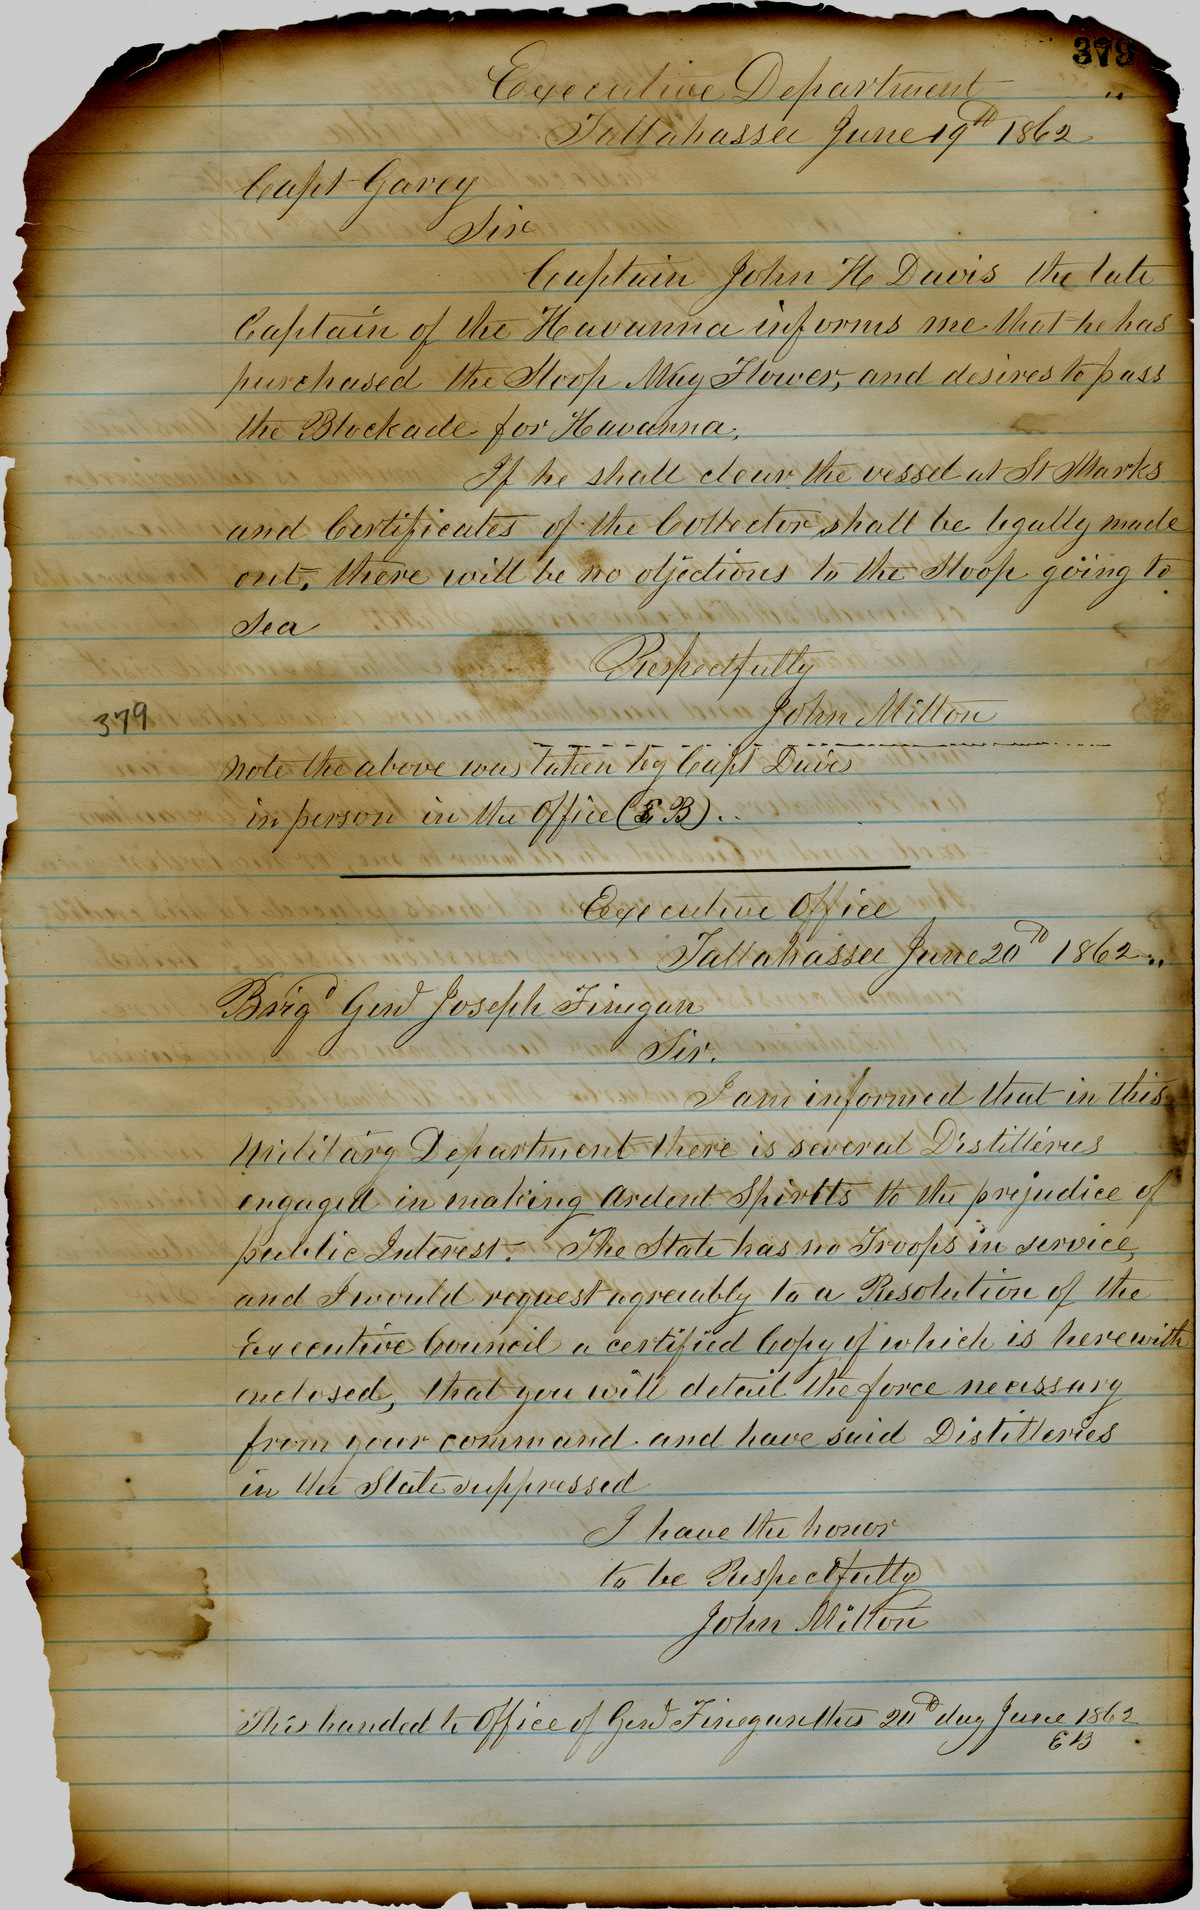 379
Executive Department
Tallahassee June 19th 1862
Capt Garey
Sir
Captain John H Davis the late
Captain of the Havanna informs me that he has
purchased the Sloop May Flower, and desires to pass
the Blockade for Havanna,
If he shall clear the vessel at St Marks
and Certificates of the Collector shall be legally made
out, there will be no objections to the Sloop going to
Sea
Respectfully
379
John Milton
note the above was taken by Capt Davis
in person in the Office (E B)..
Executive Office
Tallahassee June 20th 1862..
Brigd Genl Joseph Finegan
Sir.
I am informed that in this
Military Department there is several Distilleries
engaged in making Ardent Spirits to the prejudice of
public Interest. The State has no Troops in service,
and I would request agreeably to a Resolution of the
Executive Council a certified Copy of which is herewith
enclosed, that you will detail the force necessary
from your command and have said Distilleries
in the State suppressed
I have the honor
to be Respectfully
John Milton
This handed to Office of Genl Finegan this 20th day June 1862
E B